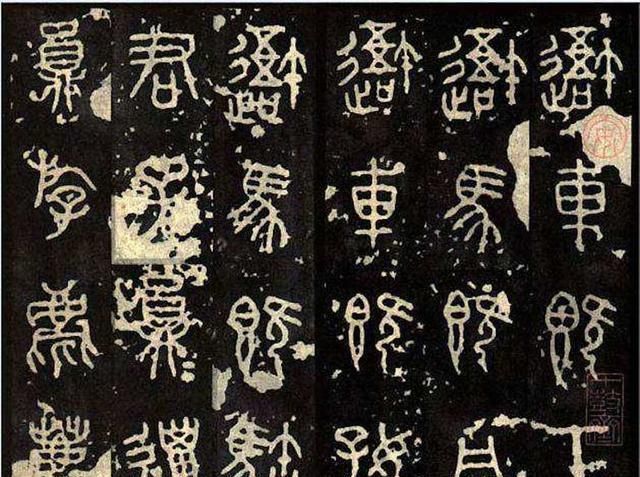 吾車既工
吾馬既同
吾車既好
吾馬既駐
君子員邋
員斿麀鹿